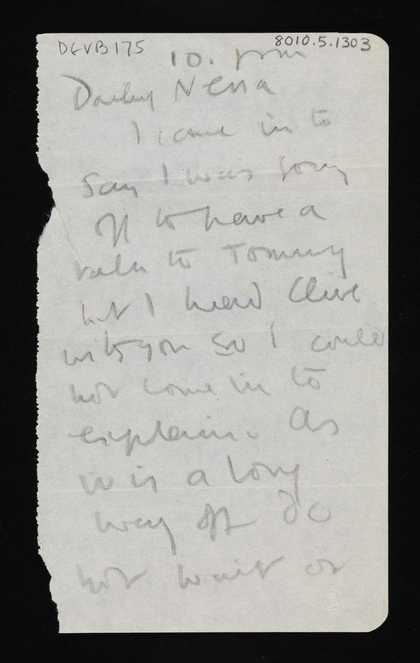 DGVB175
8010.5.1303
10. pm
Darling Nessa
I came in to
say I was going
off to have a
talk to Tommy
but I heard Clive
with you so I could
not come in to
explain. As
it is a long
way off do
not wait or